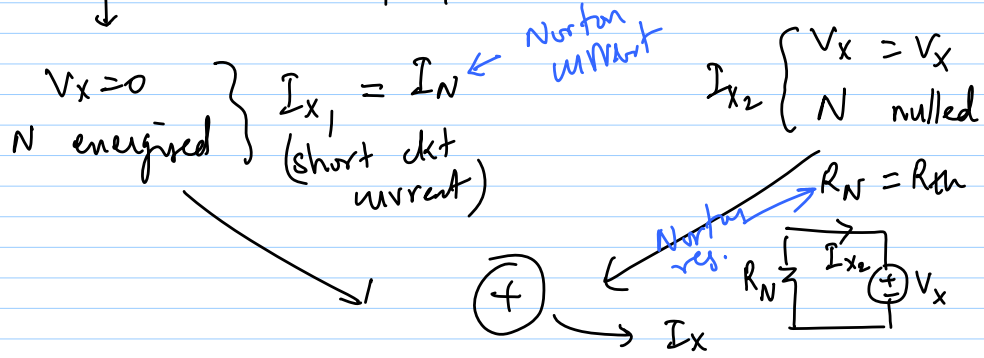 Vx=0
N energised
Ix1 = IN
(short ckt
current)
Norton
current
Ix2
Vx = Vx
N nulled
RN = Rth
Norton
res.
RN
Ix2
+
Vx
+
Ix